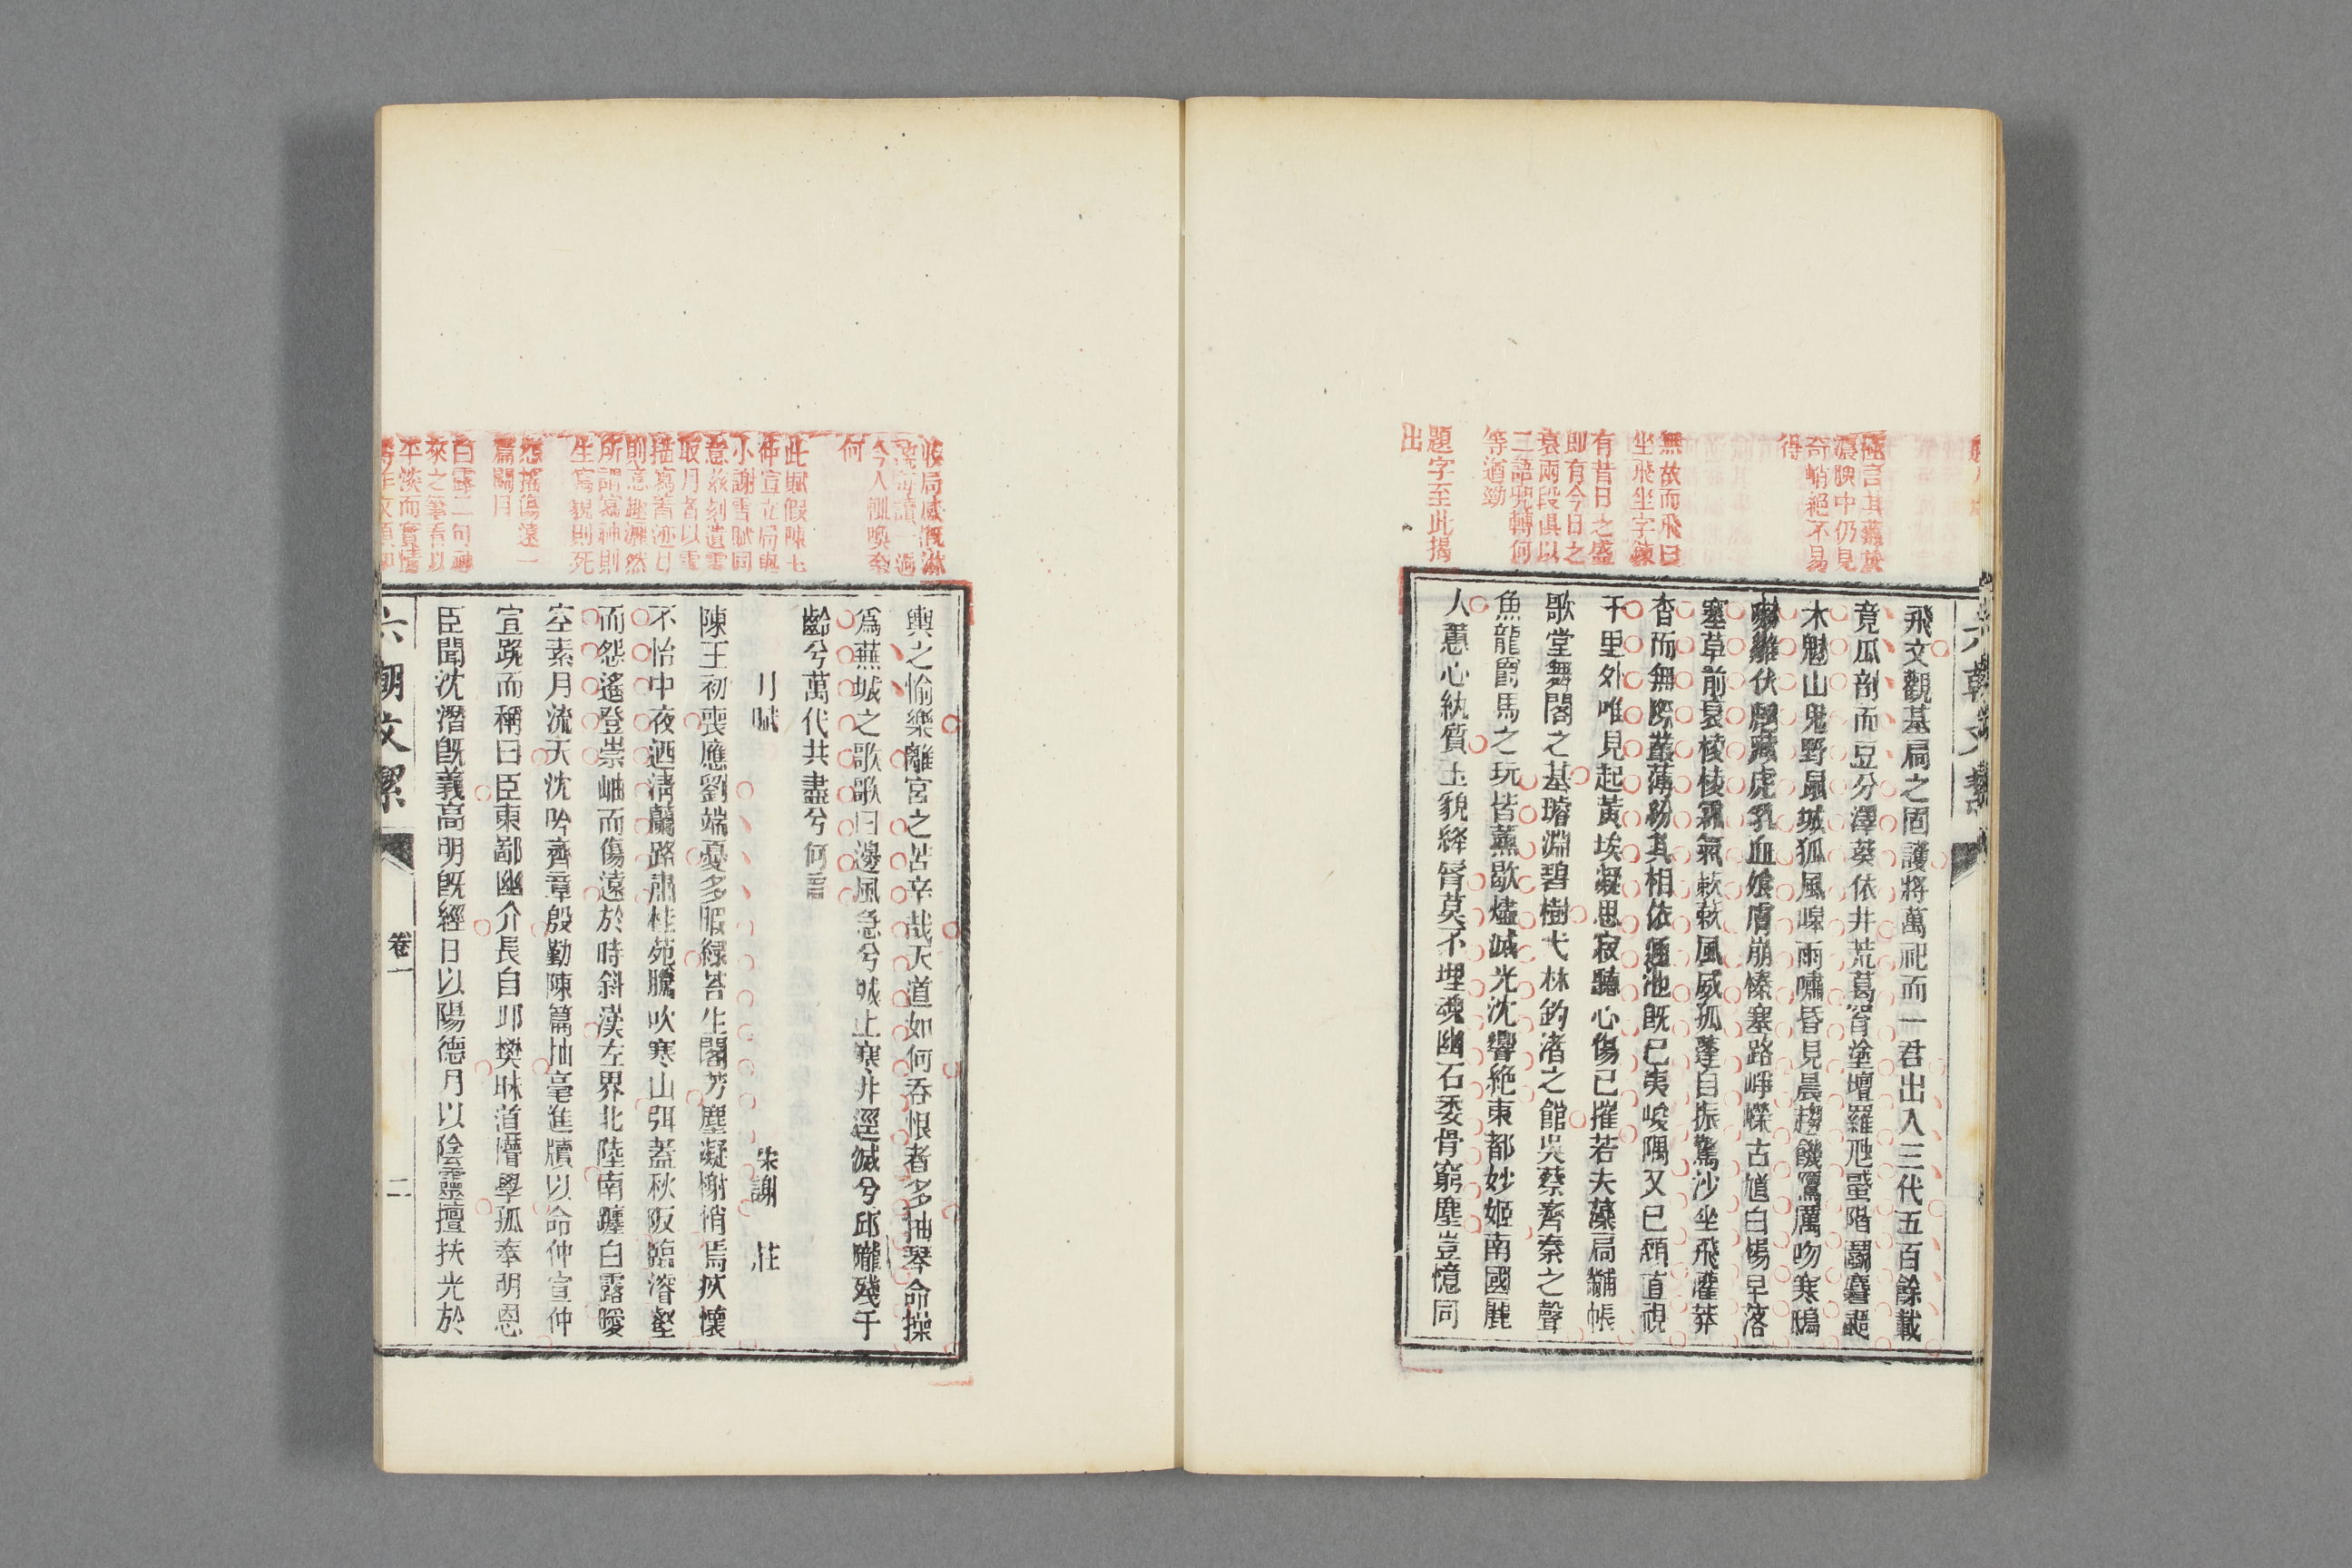 極言其蕪於
濃腴中仍見
奇峭絕不易
得
無故而飛曰
坐飛坐字鍊
有昔日之盛
即有今日之
衰兩段俱以
二語兜轉何
等遒勁
題字至此揭
出
飛文觀基扃之固護將萬祀而一君出入三代五百餘載
竟瓜剖而豆分澤葵依井荒葛罥塗壇羅虺蜮階鬭麏鼯
木魅山鬼野鼠城狐風嘷雨嘯昏見晨趨饑鷹厲吻寒鴟
嚇雛伏虣藏虎乳血飧膚崩榛塞路崢嶸古馗白楊早落
塞草前衰棱棱霜氣蔌蔌風威孤蓬自振驚沙坐飛灌莽
杳而無際叢薄紛其相依通池旣已夷峻隅又已頽直視
千里外唯見起黃埃凝思寂聽心傷已摧若夫藻扃黼帳
歌堂舞閣之基璿淵碧樹弋林釣渚之館吳蔡齊秦之聲
魚龍爵馬之玩皆薰歇燼滅光沈響絕東都妙姬南國麗
人蕙心紈質玉貌絳脣莫不埋魂幽石委骨窮塵豈憶同
六朝文絜
收局感慨淋
漓每讀一過
令人輒喚奈
何
此賦假陳王
仲宣立局與
小謝雪賦同
意茲刻遺雪
取月者以雪
描寫著迹月
則意趣灑然
所謂寫神則
生寫貌則死
怨搖傷遠一
篇關月
白露二句神
來之筆看以
平淡而實情
輿之愉樂離宮之苦辛哉天道如何吞恨者多抽琴命操
爲蕪城之歌歌曰邊風急兮城上寒井逕滅兮邱隴殘千
齡兮萬代共盡兮何言
月賦 宋謝 莊
陳王初喪應劉端憂多暇綠苔生閣芳塵凝榭悄焉疚懷
不怡中夜迺淸蘭路肅桂苑騰吹寒山弭蓋秋阪臨濬壑
而怨遙登崇岫而傷遠於時斜漢左界北陸南躔白露曖
空素月流天沈吟齊章殷勤陳篇抽毫進牘以命仲宣仲
宣跪而稱曰臣東鄙幽介長自邱樊昧道懵學孤奉明恩
臣聞沈潛旣義高明旣經日以陽德月以陰靈擅扶光於
六朝文絜 卷一 二